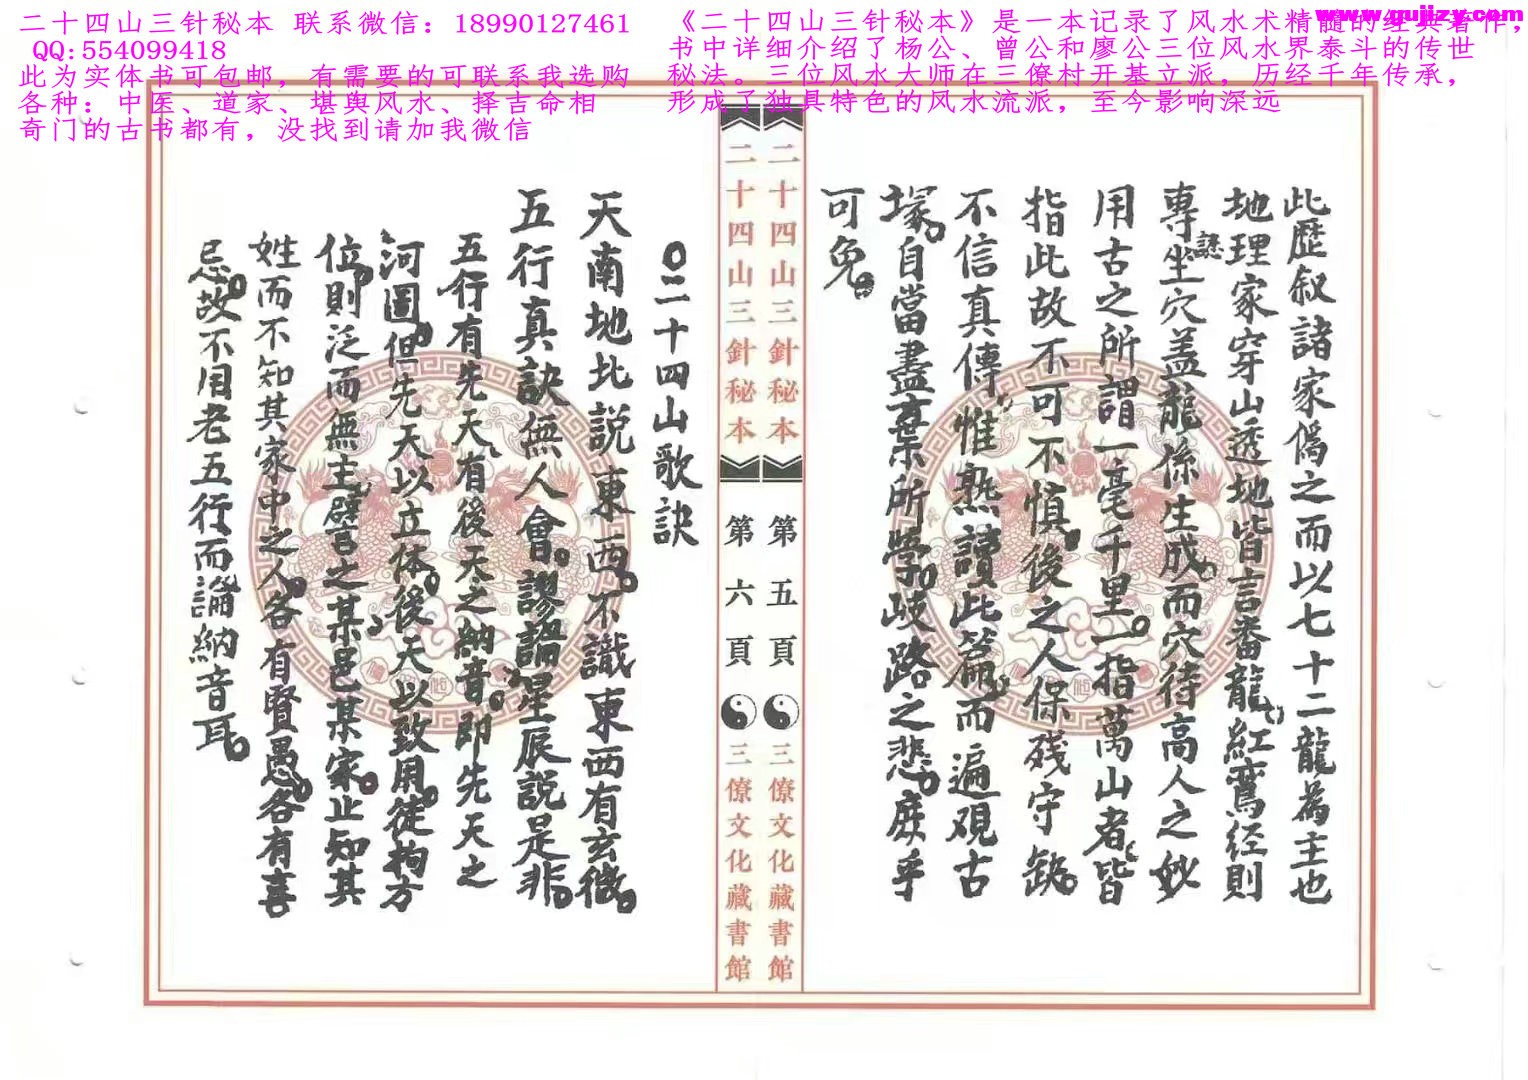 二十四山三针秘本 联系微信：18990127461
QQ:554099418
此为实体书可包邮，有需要的可联系我选购
各种：中医、道家、堪舆风水、择吉命相
奇门的古书都有，没找到请加我微信
《二十四山三针秘本》是一本记录了风水术精髓的经典著作，
书中详细介绍了杨公、曾公和廖公三位风水界泰斗的传世
秘法。三位风水大师在三僚村开基立派，历经千年传承，
形成了独具特色的风水流派，至今影响深远
www.gujizy.com
此歷叙諸家偽之而以七十二龍為主也
地理家穿山透地皆言番龍紅鸞经則
專坐穴盖龍係生成而穴待高人之妙
誌
用古之所謂一毫千里一指萬山者皆
指此故不可不慎後之人保殘守缺
不信真傳惟熟讀此篇而遍观古
塚自當盡棄所學歧路之悲庶乎
可免
二十四山三針秘本
第五頁
三僚文化藏書館
二十四山三針秘本
第六頁
三僚文化藏書館
〇二十四山歌訣
天南地北説東西不識東西有玄微
五行真訣無人會謬論星辰説是非
五行有先天有後天之納音即先天之
河圖但先天以立体後天以致用徒拘方
位則泛而無主譬之某邑某家止知其
姓而不知其家中之人各有賢愚各有喜
忌故不用老五行而論納音耳